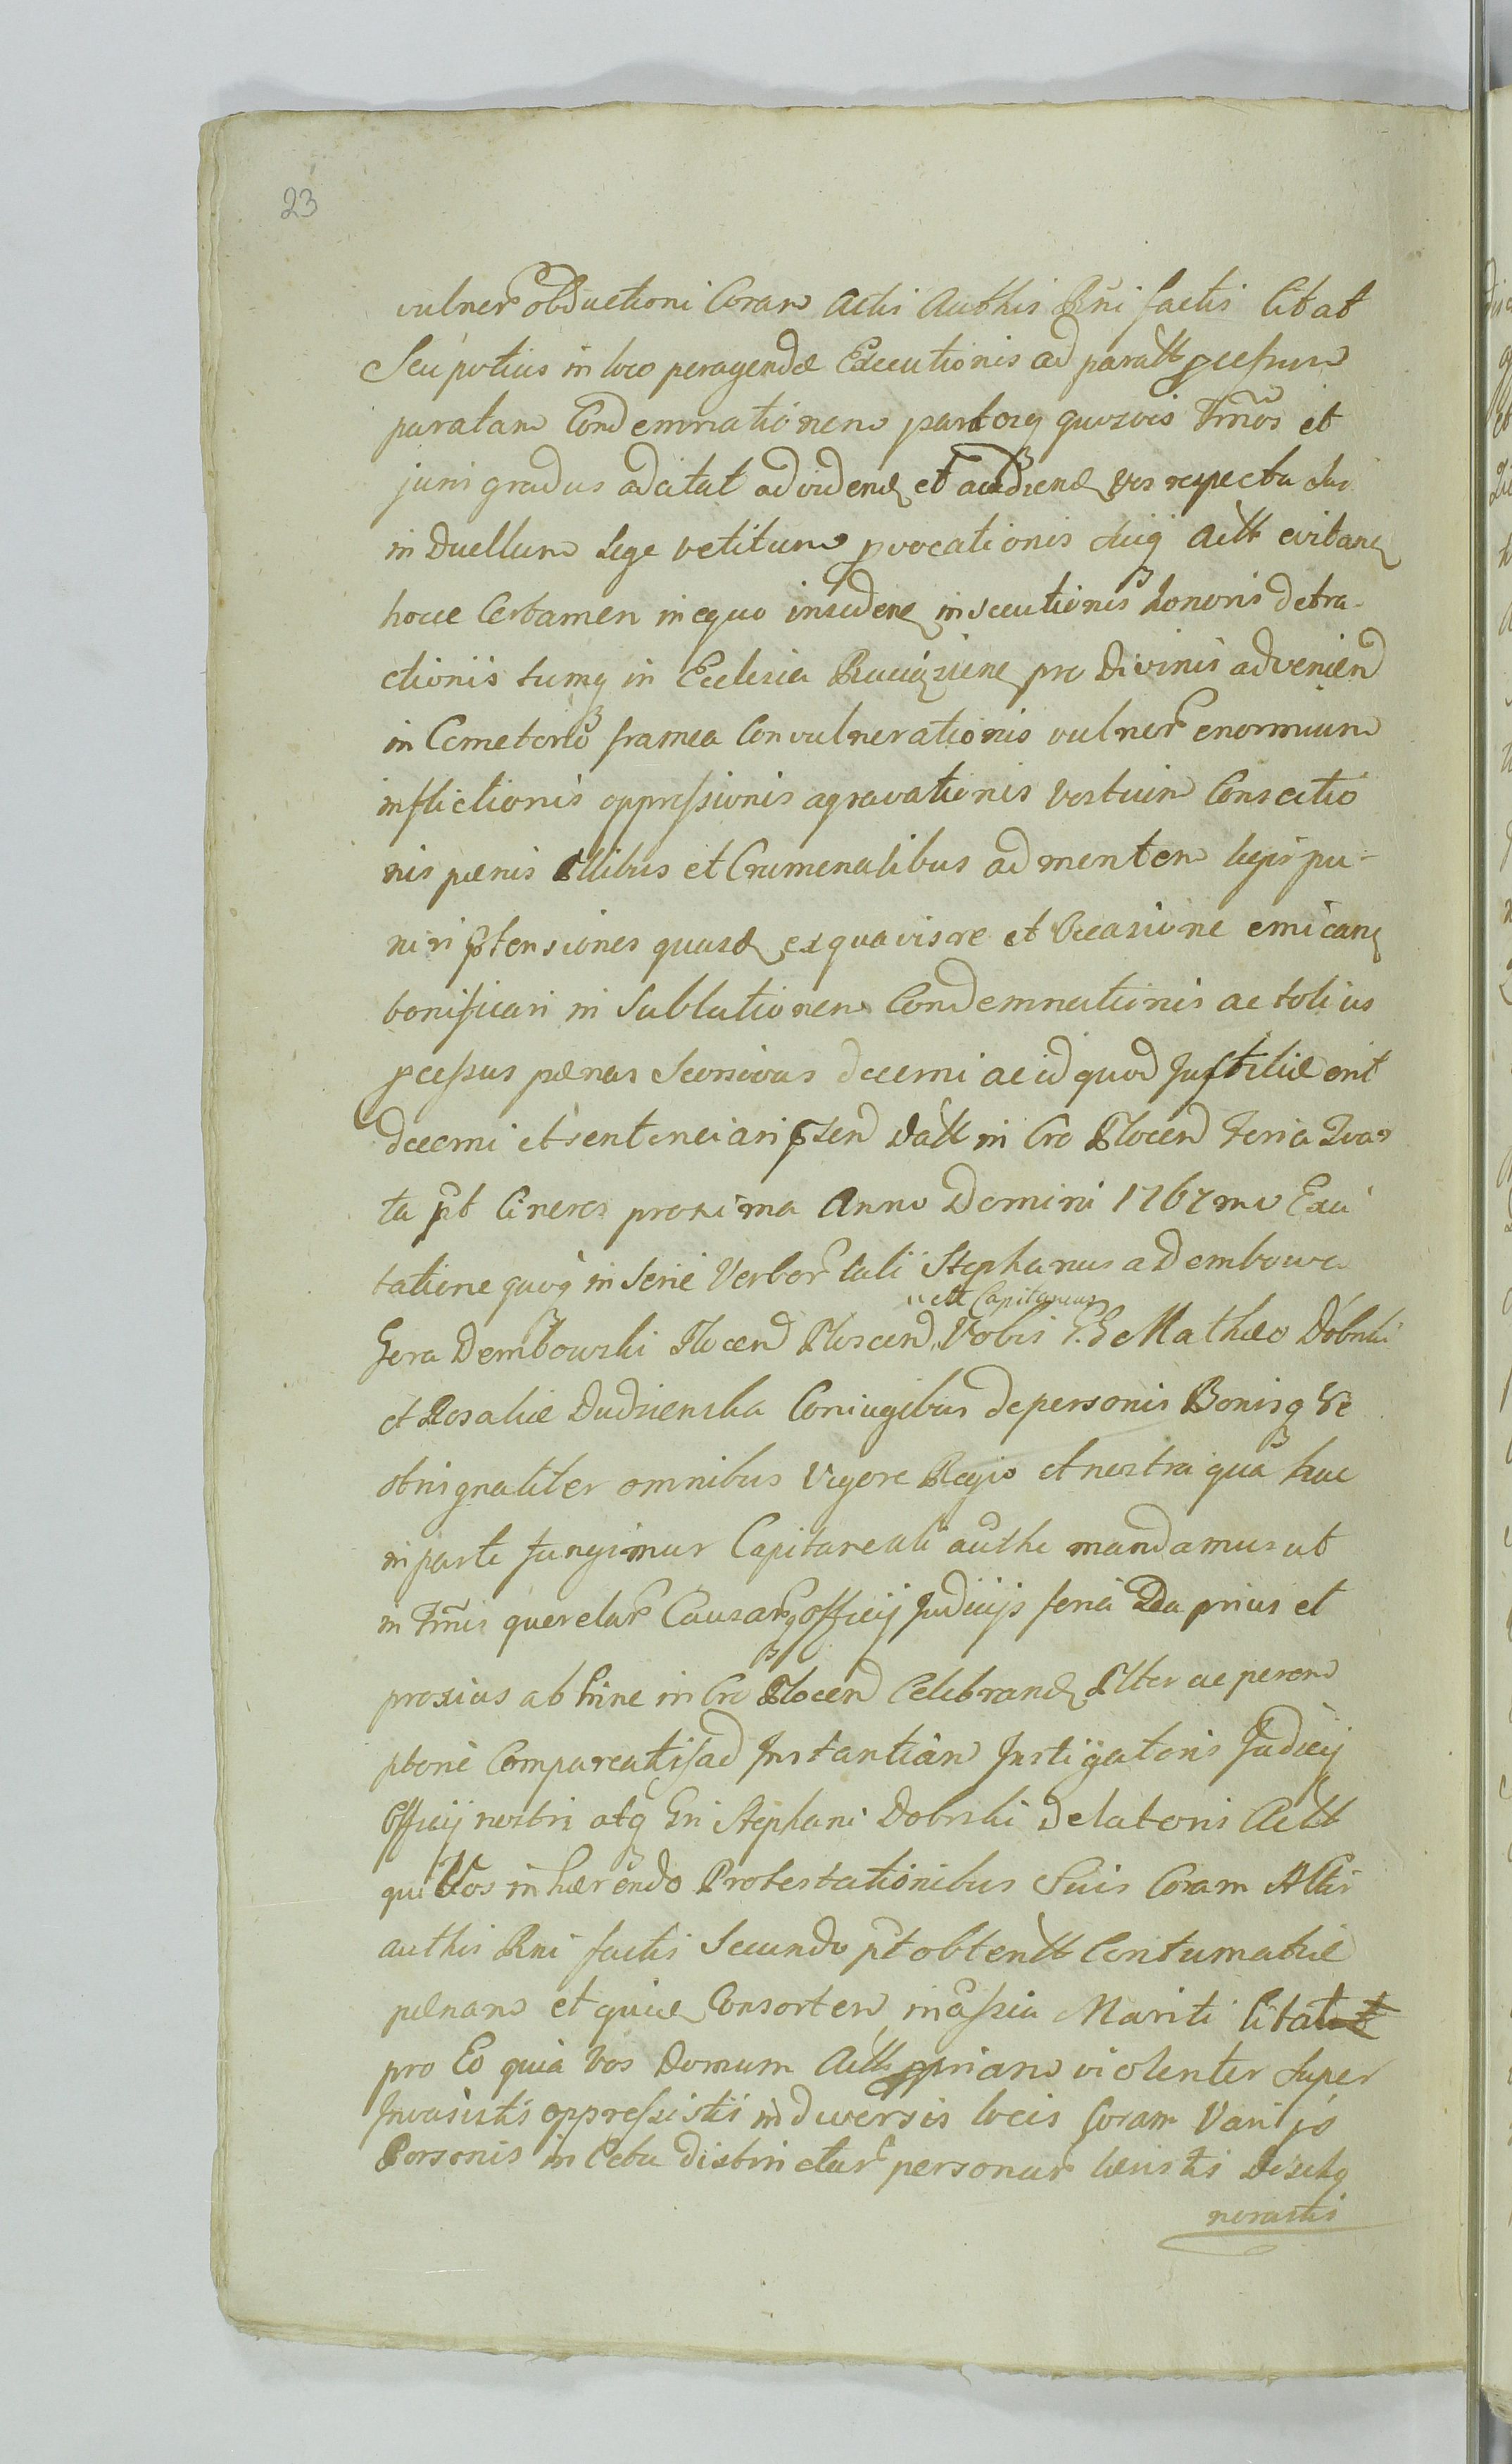 23
vulner obductioni Coram Actis Authis Rni factis Citat
Seu potius in loco peragendæ Executionis ad paratt pcessum
paratam Condemnationem partesq quosvis Tmos et
juris gradus adcitat ad videnđ et audienđ vos respectu
in Duellum Lege vetitum pvocationis Actt evitanđ
hocce Certamen in equo insidenđ insecutionis honoris detra-
ctionis tumq in Ecclesia pro Divinis advenien
in Cemeterio framea Convulnerationis vulner enormium
inflictionis oppressionis agravationis Vestrum Conscitio
nis pænis Cllibus et Crimenalibus ad mentem legis pu-
niri ptensiones quasđ ex quavis re et Occasione emicanđ
bonificari in Sublationem Condemnationis ac totius
pcessus pænas Secusivas decerni ac id quod Justitiæ erit
decerni et sentenciari psen Datt in Cro Plocen Feria Quar
ta pt Cineres proxima Anno Domini 1767mo Exci
tatione quoq in Serie Verbor tali Stephanus a Dembowa
ett Capitaneus
Gora Dembowski Plocen Plocen Vobis G.G Mathæo Dobrski
et Rosaliæ Dudzienska Coniugibus de personis Bonisq Ve
stris gnaliter omnibus Vigore Regio et nostra qua hac
in parte fungimur Capitaneali authe mandamus ut
in Tmis querelar Causarq Officij Judicijs feria 2da prius et
proxius ab hinc in Cro Plocen Celebranđ Plter ac perem
ptorie Compareatis ad Instantiam Instigatoris Judicij
Officij nostri atq Gsi Stephani Dobrski Delatoris Actt
qui Vos inhærendo Protestationibus Suis Coram Actis
authis Rni factis Secundo pt obtentt Contumatiæ
pænam et quide Consortem in assia Mariti Citat
pro Eo quia Vos Domum Actt ppriam violenter Super
Invasistis oppressistis in diversis locis Coram Varijs
Personis in Cetu distinctar personar læsistis Deseho
norastis